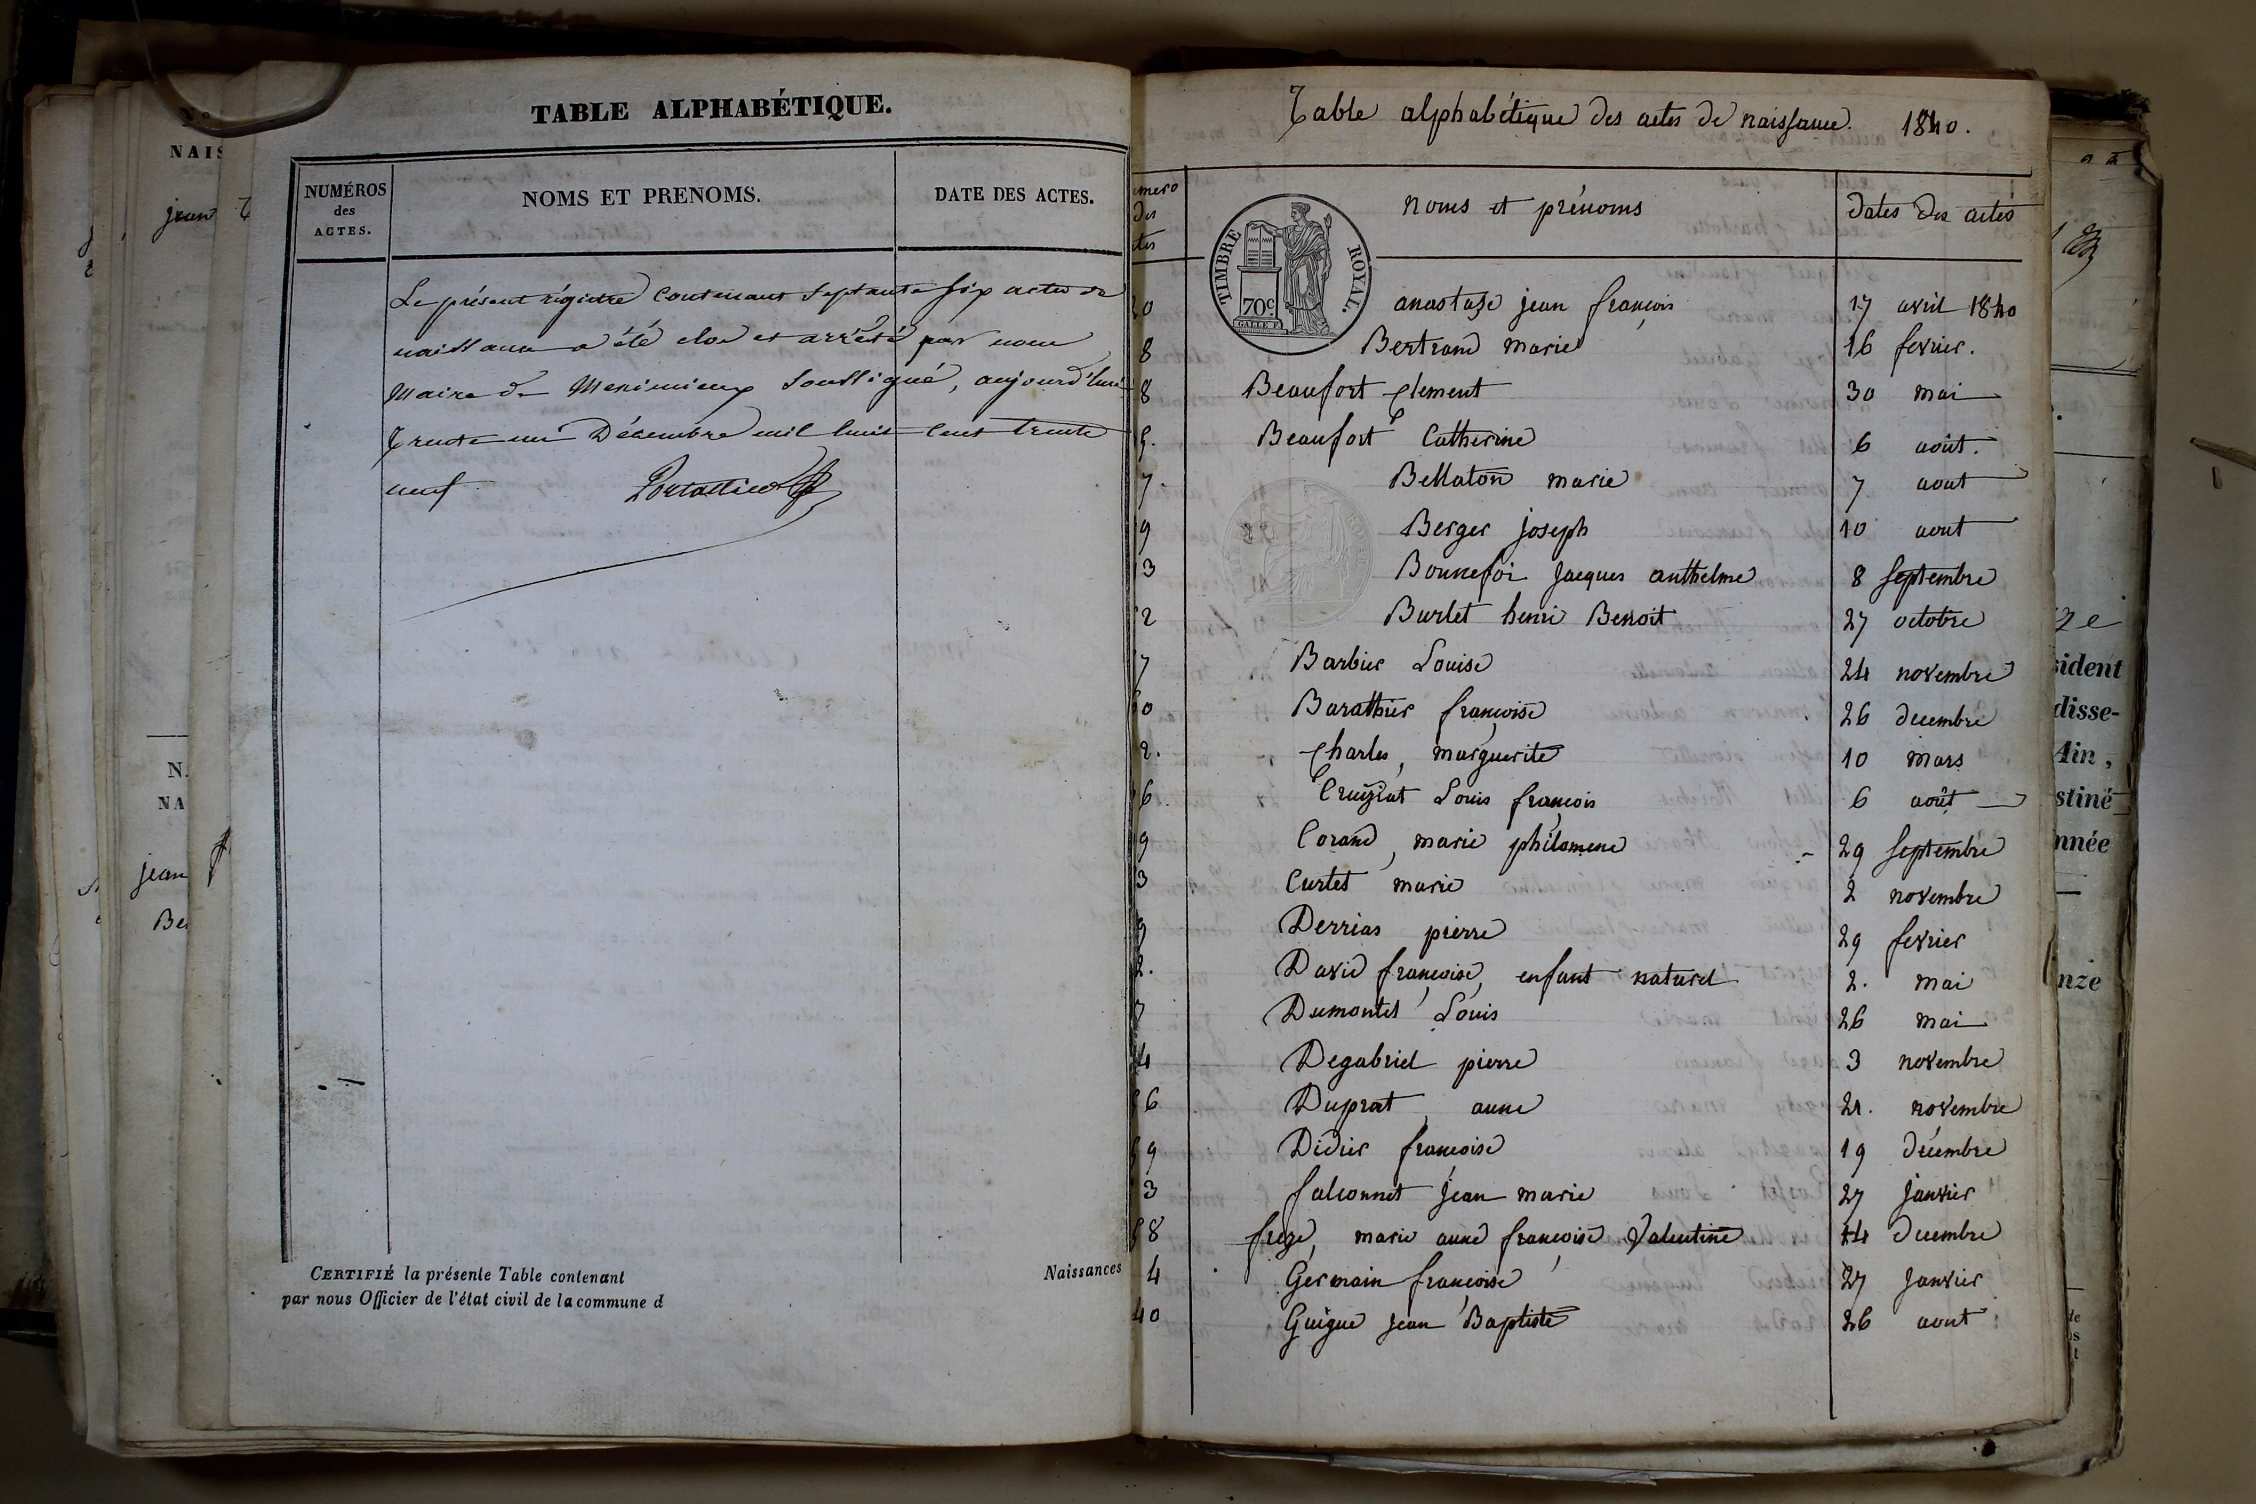 TABLE ALPHABÉTIQUE.
NUMÉROS
des
ACTES.
NOMS ET PRENOMS.
DATE DES ACTES.
Le présent régistre contenant Septante Six actes de
naissance a été clos et arrêté par nous
Maire de Meximieux Soussigné, aujourd'hui
Trente un Décembre mil huit cent trente
neuf
CERTIFIÉ la présente Table contenant
par nous Officier de l'état civil de la commune d
Naissances
Table alphabétique des actes de naissance. 1840.
numero
des
actes
noms et prénoms
dates des actes
TIMBRE ROYAL.
70c
0 anastase jean françois 17 avril 1840
8 Bertrand marie 16 fevrier.
8 Beaufort Clement 30 mai
5. Beaufort Catherine 6 août.
7. Bellaton marie 7 aout
9 Berger joseph 10 aout
3 Bonnefoi jacques anthelme 8 septembre
2 Burlet henri Benoit 27 octobre
7 Barbier Louise 24 novembre
0 Barathier françoise 26 decembre
2. Charles, marguerite 10 mars
6 Cruizat Louis françois 6 août
9 Corand, marie philomene 29 septembre
3 Curtet marie 2 novembre
9 Derrias pierre 29 fevrier
2. David françoise, enfant naturel 2. mai
7 Dumontet Louis 26 mai
4 Degabriel pierre 3 novembre
56 Duprat, anne 21. novembre
59 Didier françoise 19 décembre
3 falconnet jean marie 27 janvier
58 freze, marie anne françoise Valentine 14 decembre
4 Germain françoise 27 janvier
40 Guigue jean Baptiste 26 aout
NAIS
jean
N.
NA
jean
Be
sident
disse-
Ain,
stiné
nnée
nze